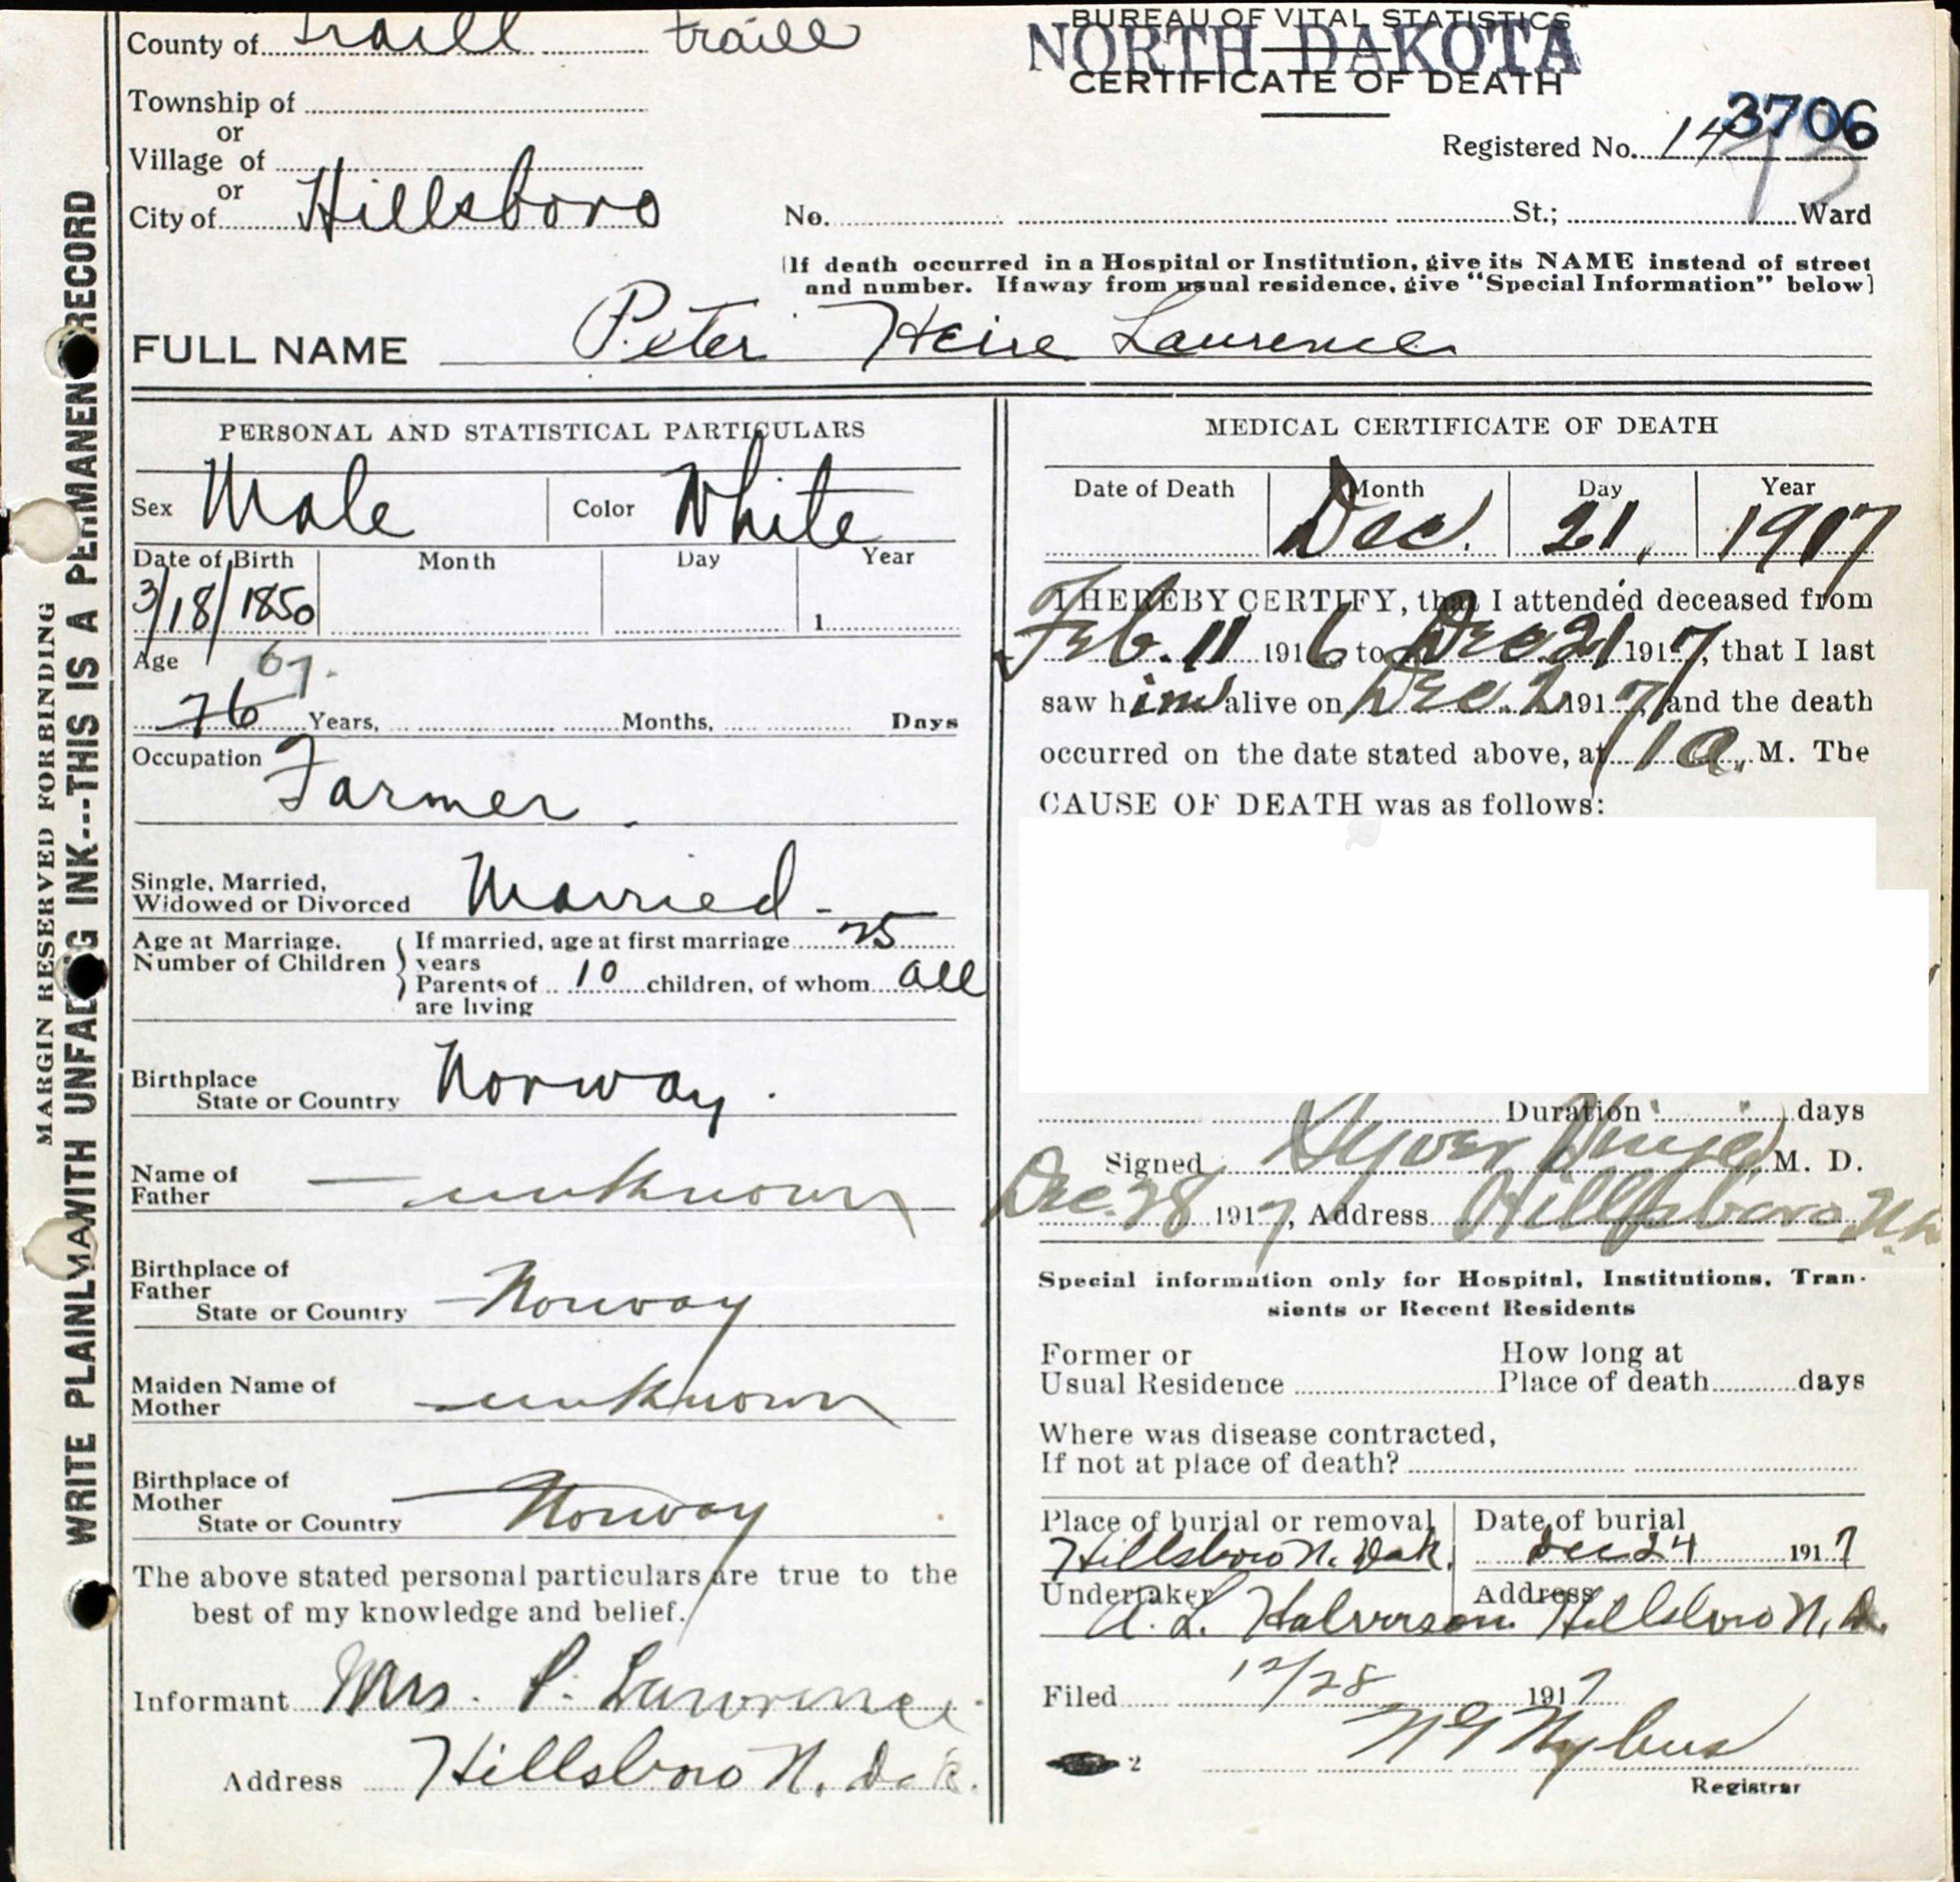 BUREAU OF VITAL STATISTICS
NORTH DAKOTA
CERTIFICATE OF DEATH
County of Traill Traill
Township of
or
Village of
or
City of Hillsboro
3706
Registered No. 14
No. St.; Ward
[If death occurred in a Hospital or Institution, give its NAME instead of street
and number. If away from usual residence, give "Special Information" below]
FULL NAME Peter Heire Laurence
MARGIN RESERVED FOR BINDING
WRITE PLAINLY WITH UNFADING INK---THIS IS A PERMANENT RECORD
PERSONAL AND STATISTICAL PARTICULARS
Sex Male Color White
Date of Birth Month Day Year
3/18/1850 1
Age 67.
76 Years, Months, Days
Occupation Farmer
Single, Married,
Widowed or Divorced Married
Age at Marriage. If married, age at first marriage 25
Number of Children years
Parents of 10 children, of whom all
are living
Birthplace
State or Country Norway.
Name of
Father unknown
Birthplace of
Father
State or Country Norway
Maiden Name of
Mother unknown
Birthplace of
Mother
State or Country Norway
The above stated personal particulars are true to the
best of my knowledge and belief.
Informant Mrs. P. Lawrence
Address Hillsboro N. Dak.
MEDICAL CERTIFICATE OF DEATH
Date of Death Month Day Year
Dec. 21, 1917
I HEREBY CERTIFY, that I attended deceased from
Feb. 11 1916 to Dec 21 1917, that I last
saw him alive on Dec. 2 1917 and the death
occurred on the date stated above, at 1 a. M. The
CAUSE OF DEATH was as follows:
Duration days
Signed M. D.
Dec. 28 1917, Address Hillsboro N.D.
Special information only for Hospital, Institutions, Tran-
sients or Recent Residents
Former or How long at
Usual Residence Place of death days
Where was disease contracted,
If not at place of death?
Place of burial or removal Date of burial
Hillsboro N. Dak. Dec 24 1917
Undertaker Address
A. L. Halverson Hillsboro N. D.
Filed 12/28 1917
Nybus
2
Registrar